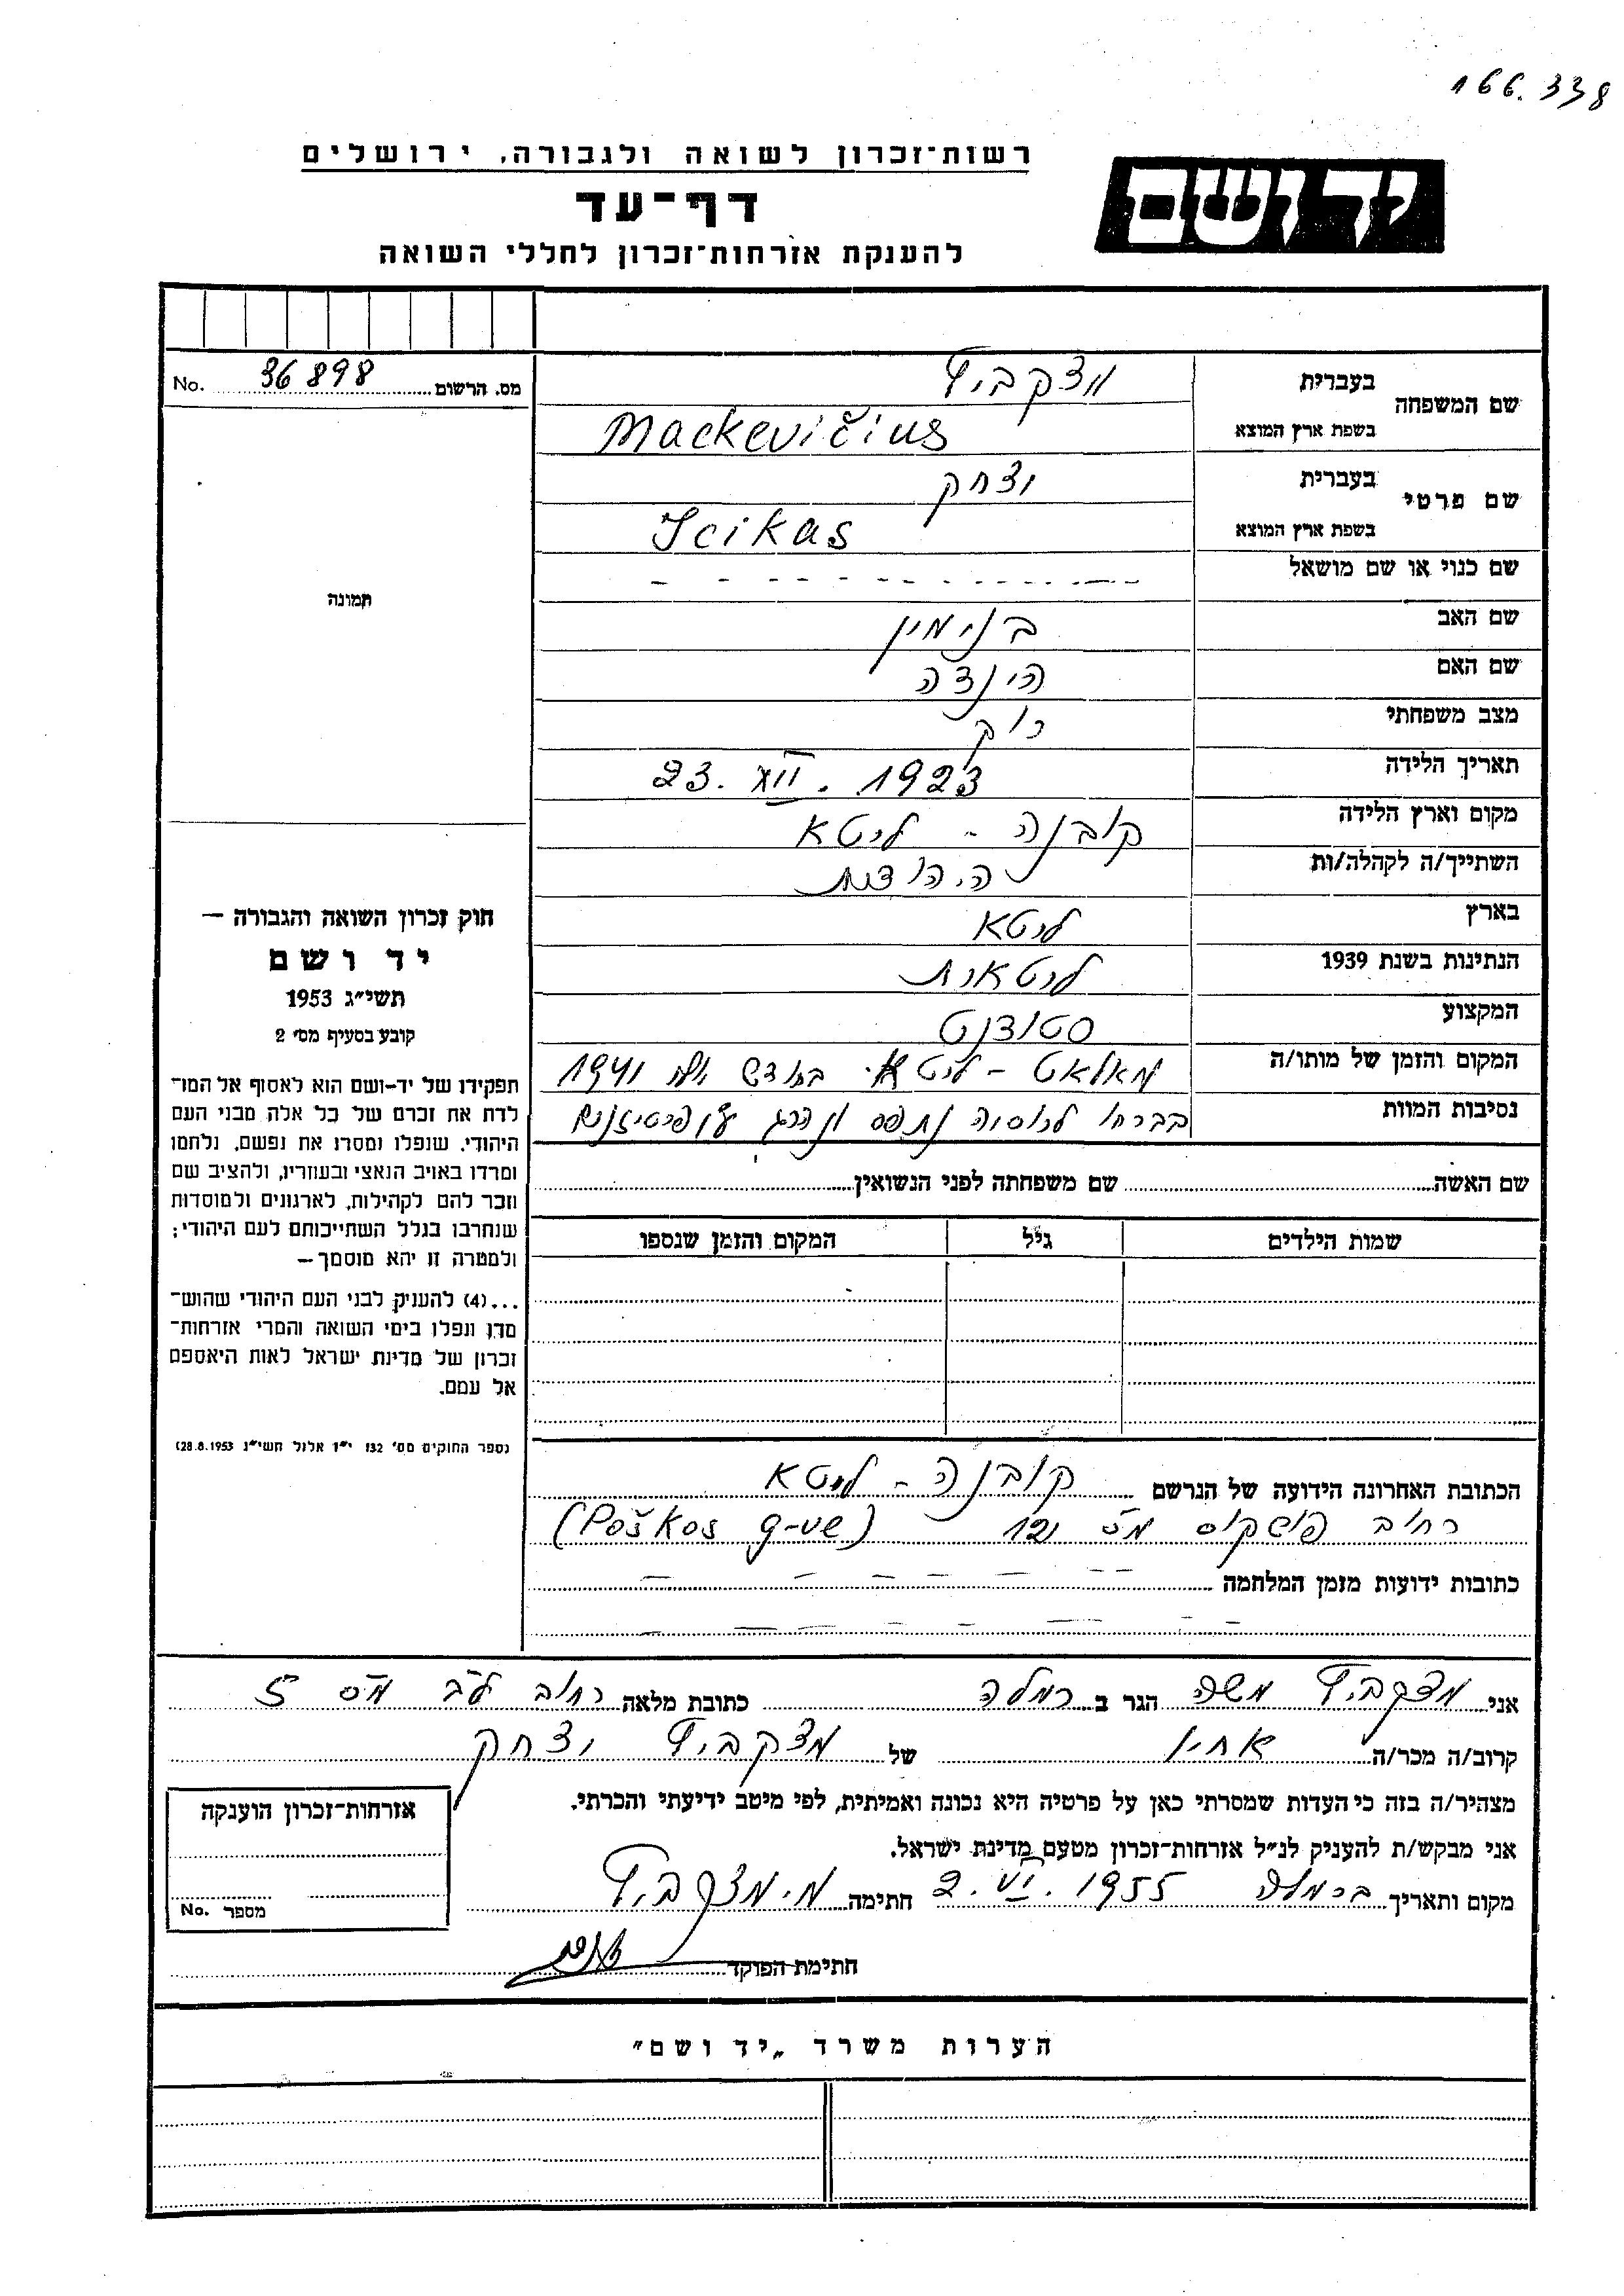 166.338
רשות־זכרון לשואה ולגבורה, ירושלים
יד ושם
דף־עד
להענקת אזרחות־זכרון לחללי השואה
מס. הרשום 36898 No.
שם המשפחה
בעברית מצקביץ
בשפת ארץ המוצא Mackevičius
שם פרטי
בעברית יצחק
בשפת ארץ המוצא Icikas
שם כנוי או שם מושאל - - - - - - - -
תמונה
שם האב בנימין
שם האם הינדה
מצב משפחתי רוק
תאריך הלידה 23. XII. 1923
מקום וארץ הלידה קובנה - ליטא
השתייך/ה לקהלה/ות
בארץ ליטא
הנתינות בשנת 1939 ליטאית
המקצוע סטודנט
המקום והזמן של מותו/ה ליטא בחודש 1941
נסיבות המוות בברחו לרוסיה נתפס ונהרג ע"י פרטיזנים
שם האשה שם משפחתה לפני הנשואין
שמות הילדים גיל המקום והזמן שנספו
חוק זכרון השואה והגבורה —
יד ושם
תשי״ג 1953
קובע בסעיף מס׳ 2
תפקידו של יד-ושם הוא לאסוף אל המו־
לדת את זכרם של כל אלה מבני העם
היהודי, שנפלו ומסרו את נפשם, נלחמו
ומרדו באויב הנאצי ובעוזריו, ולהציב שם
וזכר להם לקהילות, לארגונים ולמוסדות
שנחרבו בגלל השתייכותם לעם היהודי;
ולמטרה זו יהא מוסמך —
...(4) להעניק לבני העם היהודי שהוש־
מדו ונפלו בימי השואה והמרי אזרחות־
זכרון של מדינת ישראל לאות היאספם
אל עמם.
(ספר החוקים מס׳ 132 י״ז אלול תשי״ג 28.8.1953)
הכתובת האחרונה הידועה של הנרשם קובנה - ליטא
רחוב פושקוס מס 12 (Poškos g-ve)
כתובות ידועות מזמן המלחמה - - - - - -
- - - - - -
אני מצקביץ משה הגר ב רמלה כתובת מלאה רחוב מס 5
קרוב/ה מכר/ה אחיו של מצקביץ יצחק
מצהיר/ה בזה כי העדות שמסרתי כאן על פרטיה היא נכונה ואמיתית, לפי מיטב ידיעתי והכרתי.
אני מבקש/ת להעניק לנ״ל אזרחות־זכרון מטעם מדינת ישראל.
מקום ותאריך ברמלה 2. VI. 1955 חתימה מ. מצקביץ
חתימת הפוקד
אזרחות־זכרון הוענקה
מספר No.
הערות משרד „יד ושם״